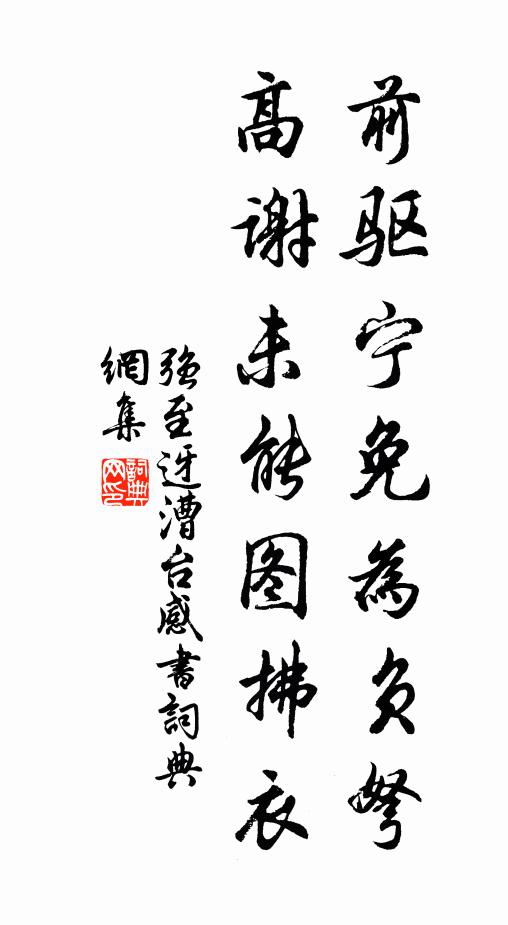 前驱宁免為负弩
高谢未能图拂衣
强至迓漕台感書詞典
網集
詞典网印